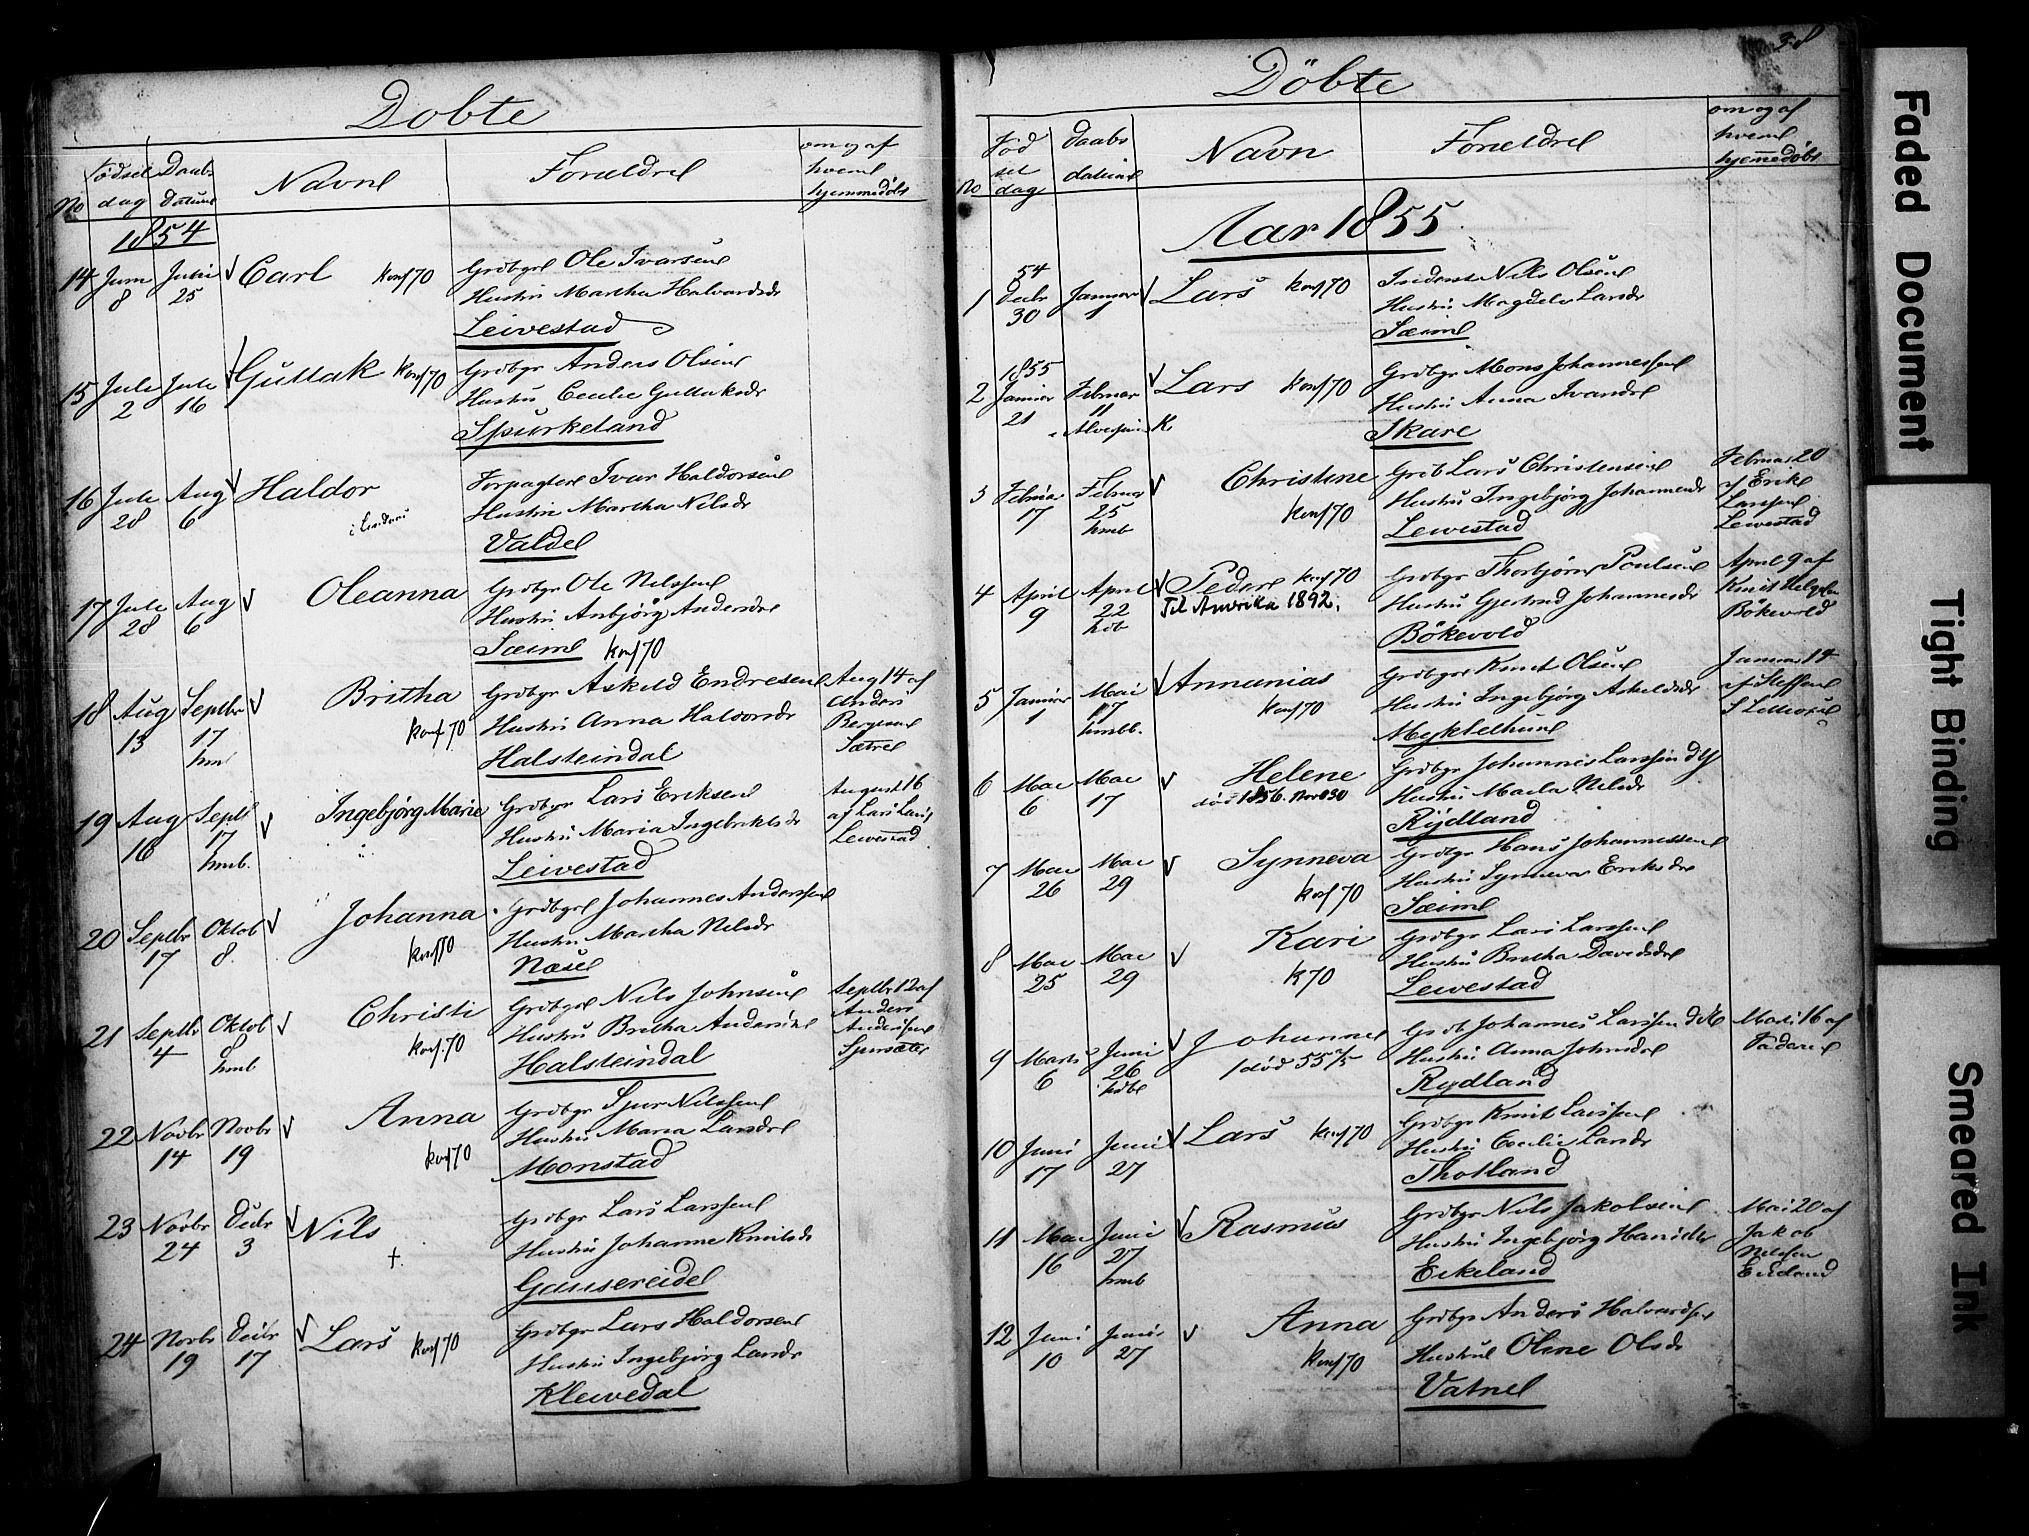 Dobte
No
Fødsel dag
Daabs Datum
Navne
Foreldre
om og af hvem hjemmedøbt
1854
14 Juni 8 Juni 25 Carl konf 70 Grdbgr Ole Ivarsen
Hustru Martha Halvardsdr
Leivestad
15 Juli 2 Juli 16 Guttak konf 70 Grdbgr Anders Olsen
Hustru Cecilie Guttaksdr
Spurkeland
16 Juli 28 Aug 6 Haldor Forpagter Ivar Haldorsen
Hustru Martha Nilsdr
Valdel
17 Juli 28 Aug 6 Oleanna Grdbgr Ole Nilssen
Hustru Anbjørg Andersdr
Sæim konf 70
18 Aug 13 Septbr 17 hm Britha konf 70 Grdbgr Askild Endresen Aug 14 af
Hustru Anna Halvorsdr Anders Bergesen
Halsteindal Sætre
19 Aug 16 Septb 17 hmb. Ingebjørg Marie Grdbgr Lars Eriksen August 16
Hustru Maria Ingebriktsdr af Lars Lars
Leivestad Leivestad
20 Septbr 17 Oktob 8. Johanna konf 70 Grdbgr Johannes Anderssen
Hustru Martha Nilsdr
Næse
21 Septbr 4 Oktob 8 hmb Christi konf. 70 Grdbgr Nils Johnsen Septbr 12 af
Hustru Britha Andersdr Anders Andersen
Halsteindal
22 Novbr 14 Novbr 19 Anna konf 70 Grdbgr Sjur Nilssen
Hustru Maria Larsdr
Monstad
23 Novbr 24 Decbr 3 Nils † Grdbgr Lars Larssen
Hustru Johanne Knutsdr
Gausereidel
24 Novbr 19 Decbr 17 Lars konf 70 Grdbgr Lars Haldorsen
Hustru Ingebjørg Larsdr
Kleivedal
38
Döbte
No
Fød sel dag
Daabs datum
Navn
Foreldre
om og af hvem hjemmedøbt
Aar 1855
1 54 Decbr 30 Januar 1 Lars konf 70 Inderste Nils Olsen
Hustru Magdela Larsdr
Sæim
2 1855 Januar 21 Februar 11 Lars konf 70 Grdbgr Mons Johannessen
Hustru Anna Ivarsdr
Skare
3 Februar 17 Februar 25 hmb Christine konf 70 Grdb Lars Christensen Februar 20
Hustru Ingebjørg Johannesdr af Erik Larssen
Leivestad Leivestad
4 April 9 April 22 hdb Peder konf 70 Grdbgr Thorbjørn Poulsen April 9 af
Til Amerika 1892. Hustru Gjertrud Johannesdr Knut Helgesen
Bökevold Bökevold
5 Januar 1 Mai 17 hmbb. Annanias konf 70 Grdbgr Knut Olsen Januar 14
Hustru Ingebjørg Askildsdr af Steffen
Myklethun
6 Mai 6 Mai 17 Helene Grdbgr Johannes Larssen d. y
død 1856. Novb 30 Hustru Marta Nilsdr
Rydland
7 Mai 26 Mai 29 Synneva konf 70 Grdbgr Hans Johannessen
Hustru Synneva Eriksdr
Sæim
8 Mai 25 Mai 29 Kari k 70 Grdbgr Lars Larssen
Hustru Britha Davidsdr
Leivestad
9 Marts 6 Juni 26 hdbt Johannes Grdb Johannes Larssen d. Æ Marts 16 af
død 55 Hustru Anna Johnsdr Faderen
Rydland
10 Juni 17 Juni 27 Lars konf 70 Grdbgr Knut Larssen
Hustru Cecilie Larsdr
Thotland
11 Mai 16 Juni 27 hmb Rasmus Grdbgr Nils Jakobsen Mai 20 af
Hustru Ingebjørg Hansdtr Jakob Nilssen
Eikeland Eikeland
12 Juni 10 Juni 27 Anna konf 70 Grdbgr Anders Halvardsen
Hustru Oline Olsdr
Vatnel
Faded Document
Tight Binding
Smeared Ink